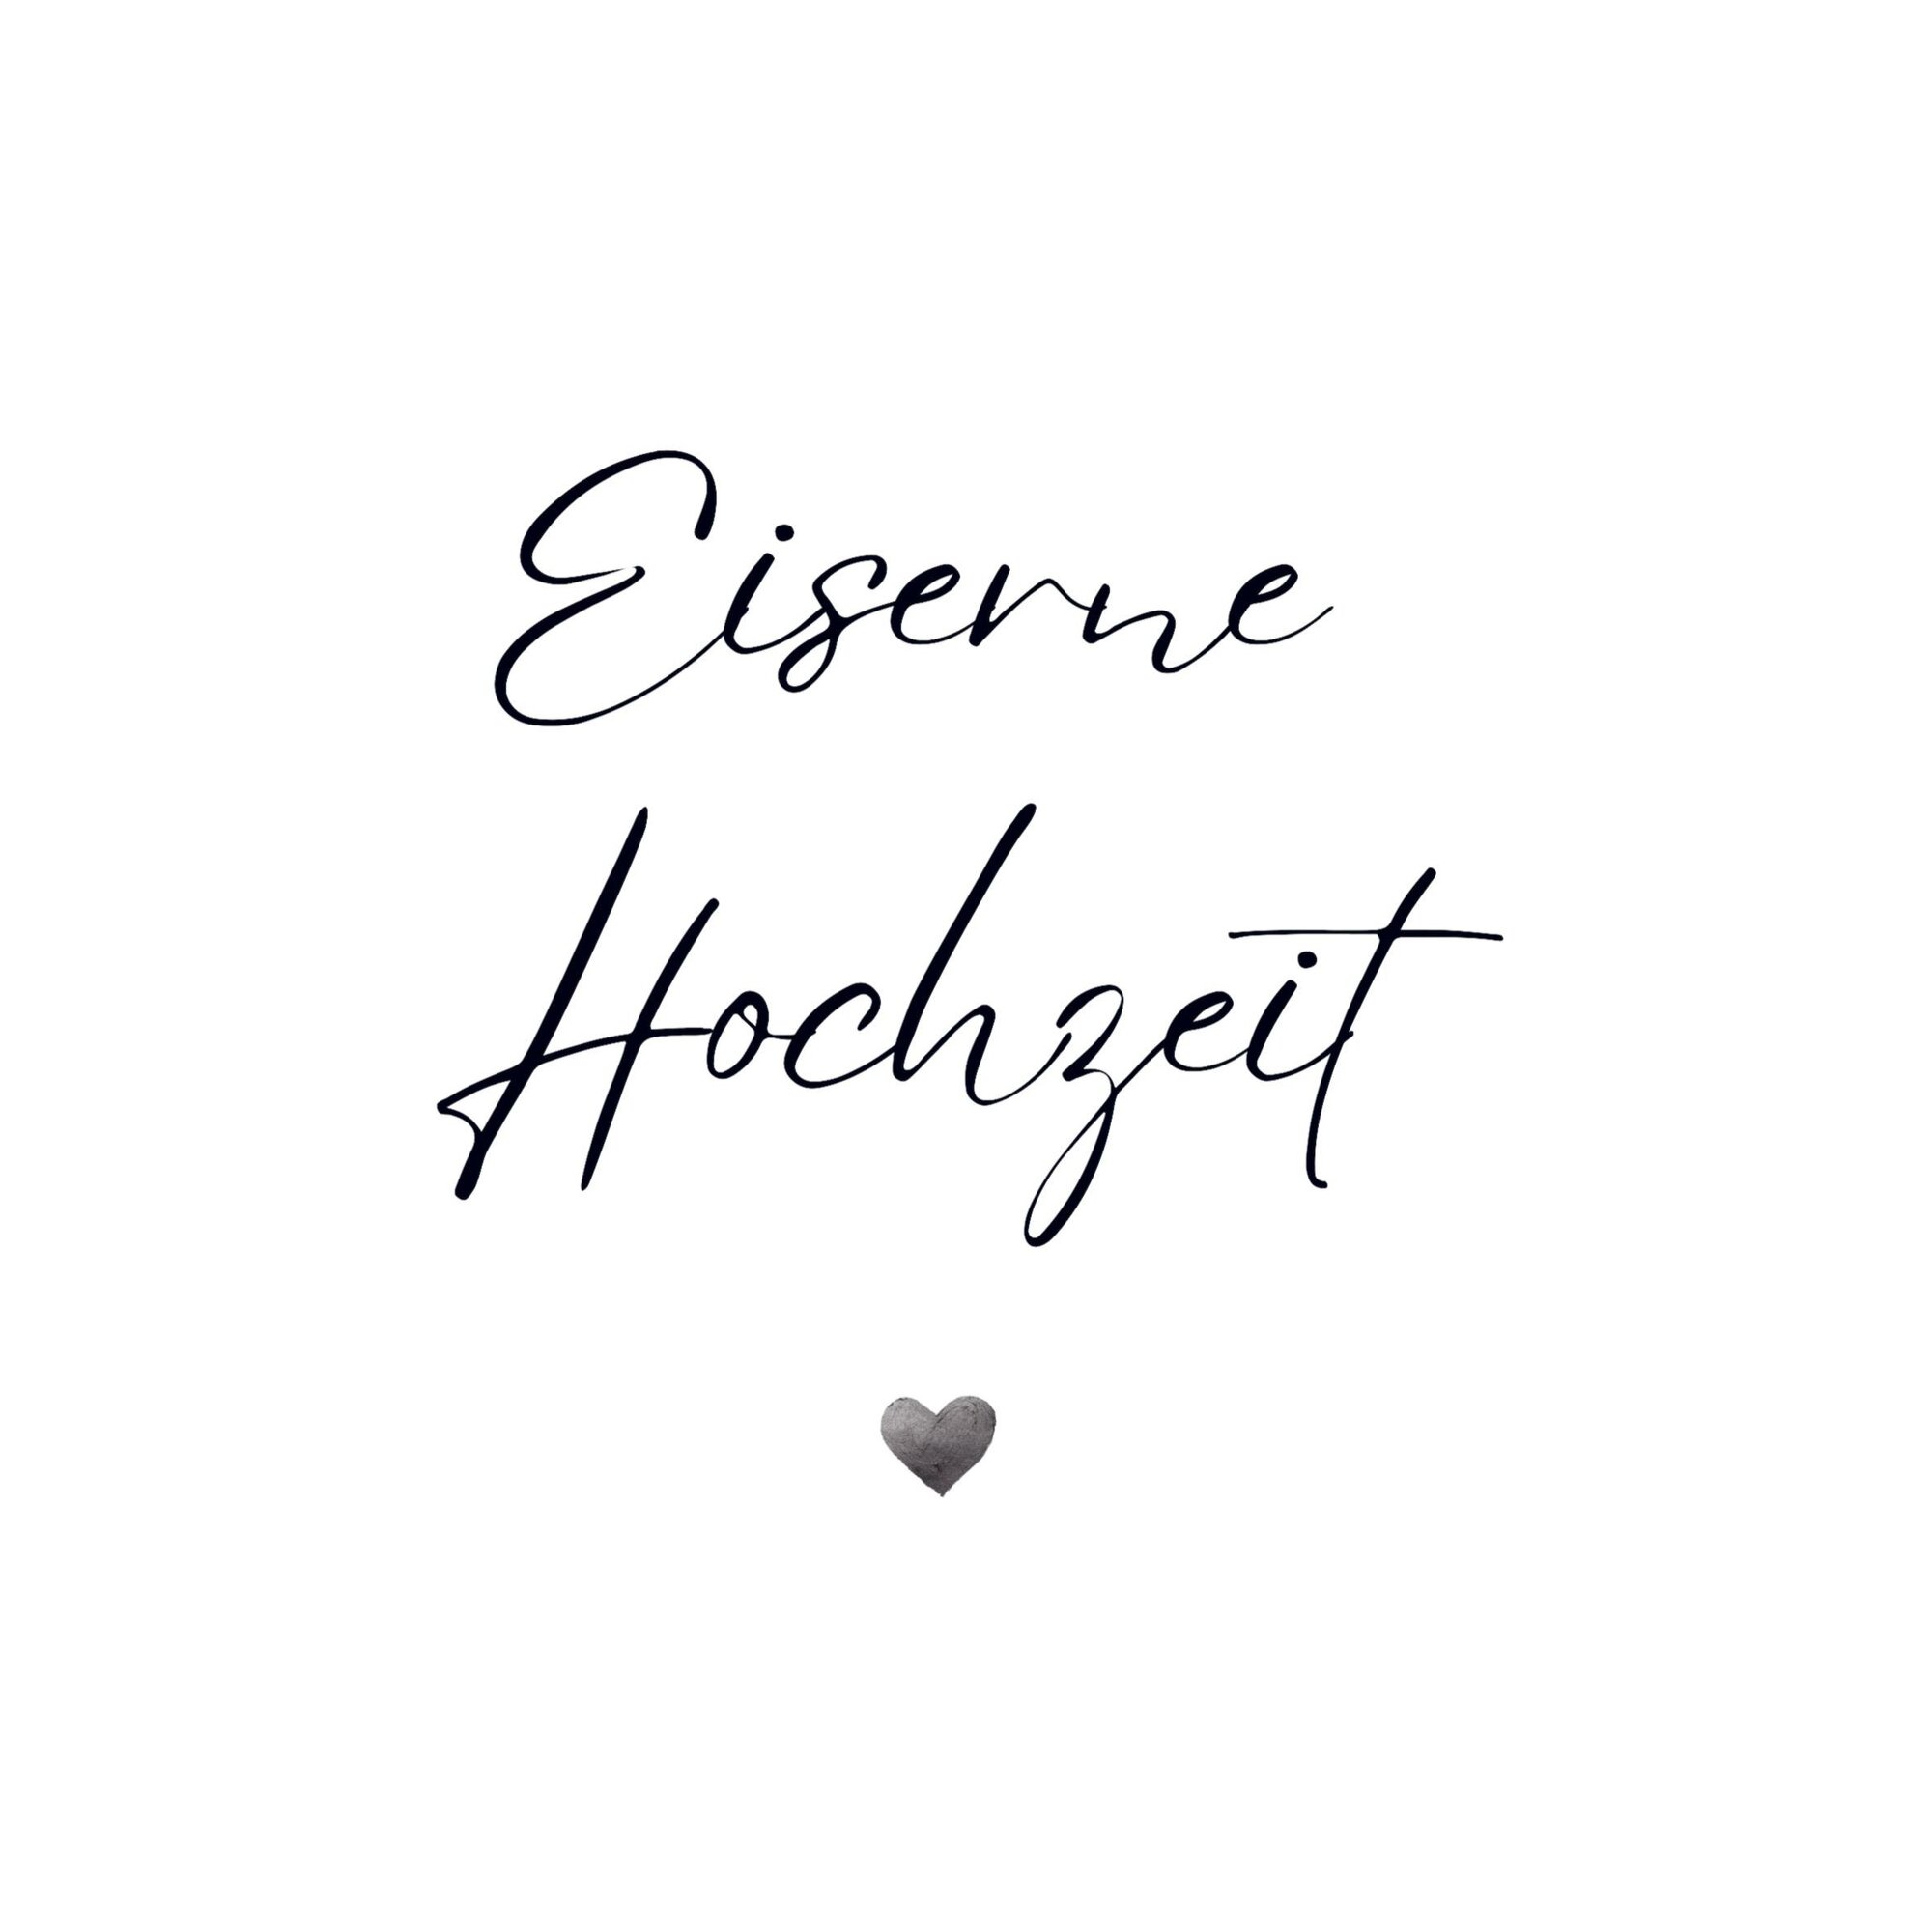 Eiserne
Hochzeit